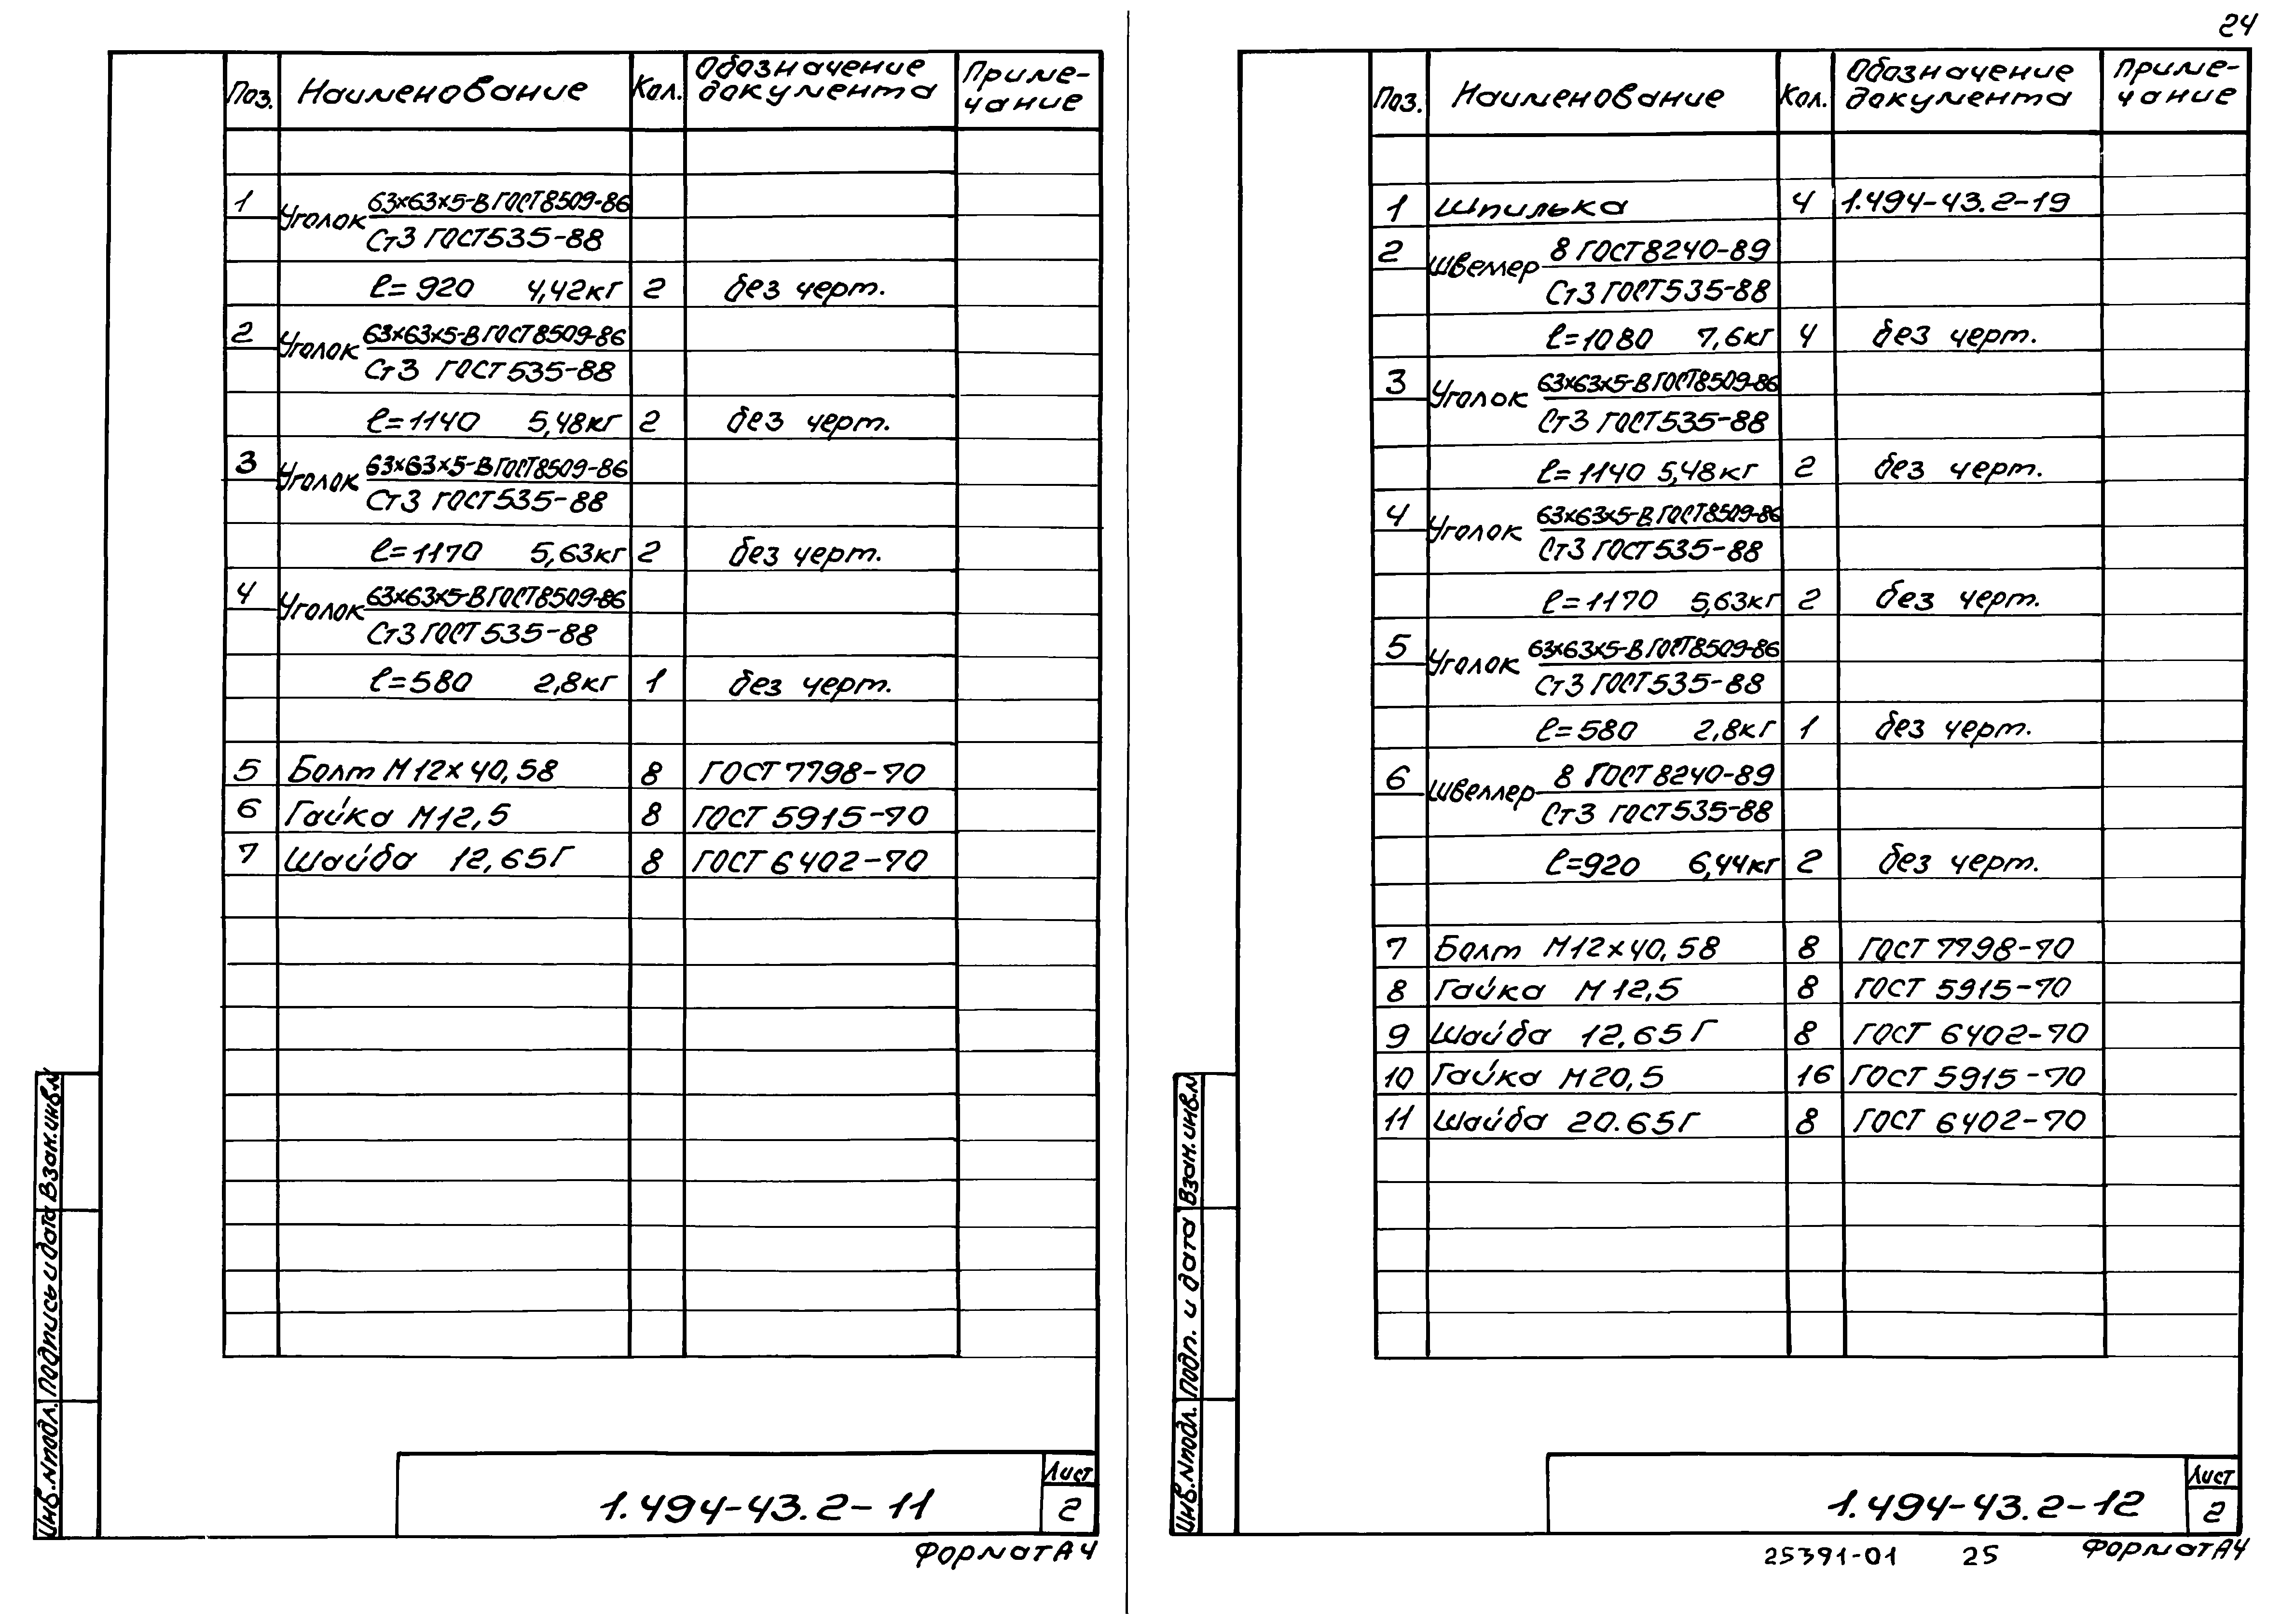 24
Поз. Наименование Кол. Обозначение документа Приме-чание
1 Уголок 63х63х5-В ГОСТ 8509-86
Ст3 ГОСТ 535-88
ℓ=920 4,42кг 2 без черт.
2 Уголок 63х63х5-В ГОСТ 8509-86
Ст3 ГОСТ 535-88
ℓ=1140 5,48кг 2 без черт.
3 Уголок 63х63х5-В ГОСТ 8509-86
Ст3 ГОСТ 535-88
ℓ=1170 5,63кг 2 без черт.
4 Уголок 63х63х5-В ГОСТ 8509-86
Ст3 ГОСТ 535-88
ℓ=580 2,8кг 1 без черт.
5 Болт М12х40,58 8 ГОСТ 7798-70
6 Гайка М12,5 8 ГОСТ 5915-70
7 Шайба 12,65Г 8 ГОСТ 6402-70
Инв.N подл. Подпись и дата Взам.инв.N
1.494-43.2-11
Лист
2
Формат А4
Поз. Наименование Кол. Обозначение документа Приме-чание
1 Шпилька 4 1.494-43.2-19
2 Швеллер 8 ГОСТ 8240-89
Ст3 ГОСТ 535-88
ℓ=1080 7,6кг 4 без черт.
3 Уголок 63х63х5-В ГОСТ 8509-86
Ст3 ГОСТ 535-88
ℓ=1140 5,48кг 2 без черт.
4 Уголок 63х63х5-В ГОСТ 8509-86
Ст3 ГОСТ 535-88
ℓ=1170 5,63кг 2 без черт.
5 Уголок 63х63х5-В ГОСТ 8509-86
Ст3 ГОСТ 535-88
ℓ=580 2,8кг 1 без черт.
6 Швеллер 8 ГОСТ 8240-89
Ст3 ГОСТ 535-88
ℓ=920 6,44кг 2 без черт.
7 Болт М12х40,58 8 ГОСТ 7798-70
8 Гайка М12,5 8 ГОСТ 5915-70
9 Шайба 12,65Г 8 ГОСТ 6402-70
10 Гайка М20,5 16 ГОСТ 5915-70
11 Шайба 20.65Г 8 ГОСТ 6402-70
Инв.N подл. Подп. и дата Взам.инв.N
1.494-43.2-12
Лист
2
25391-01 25 Формат А4